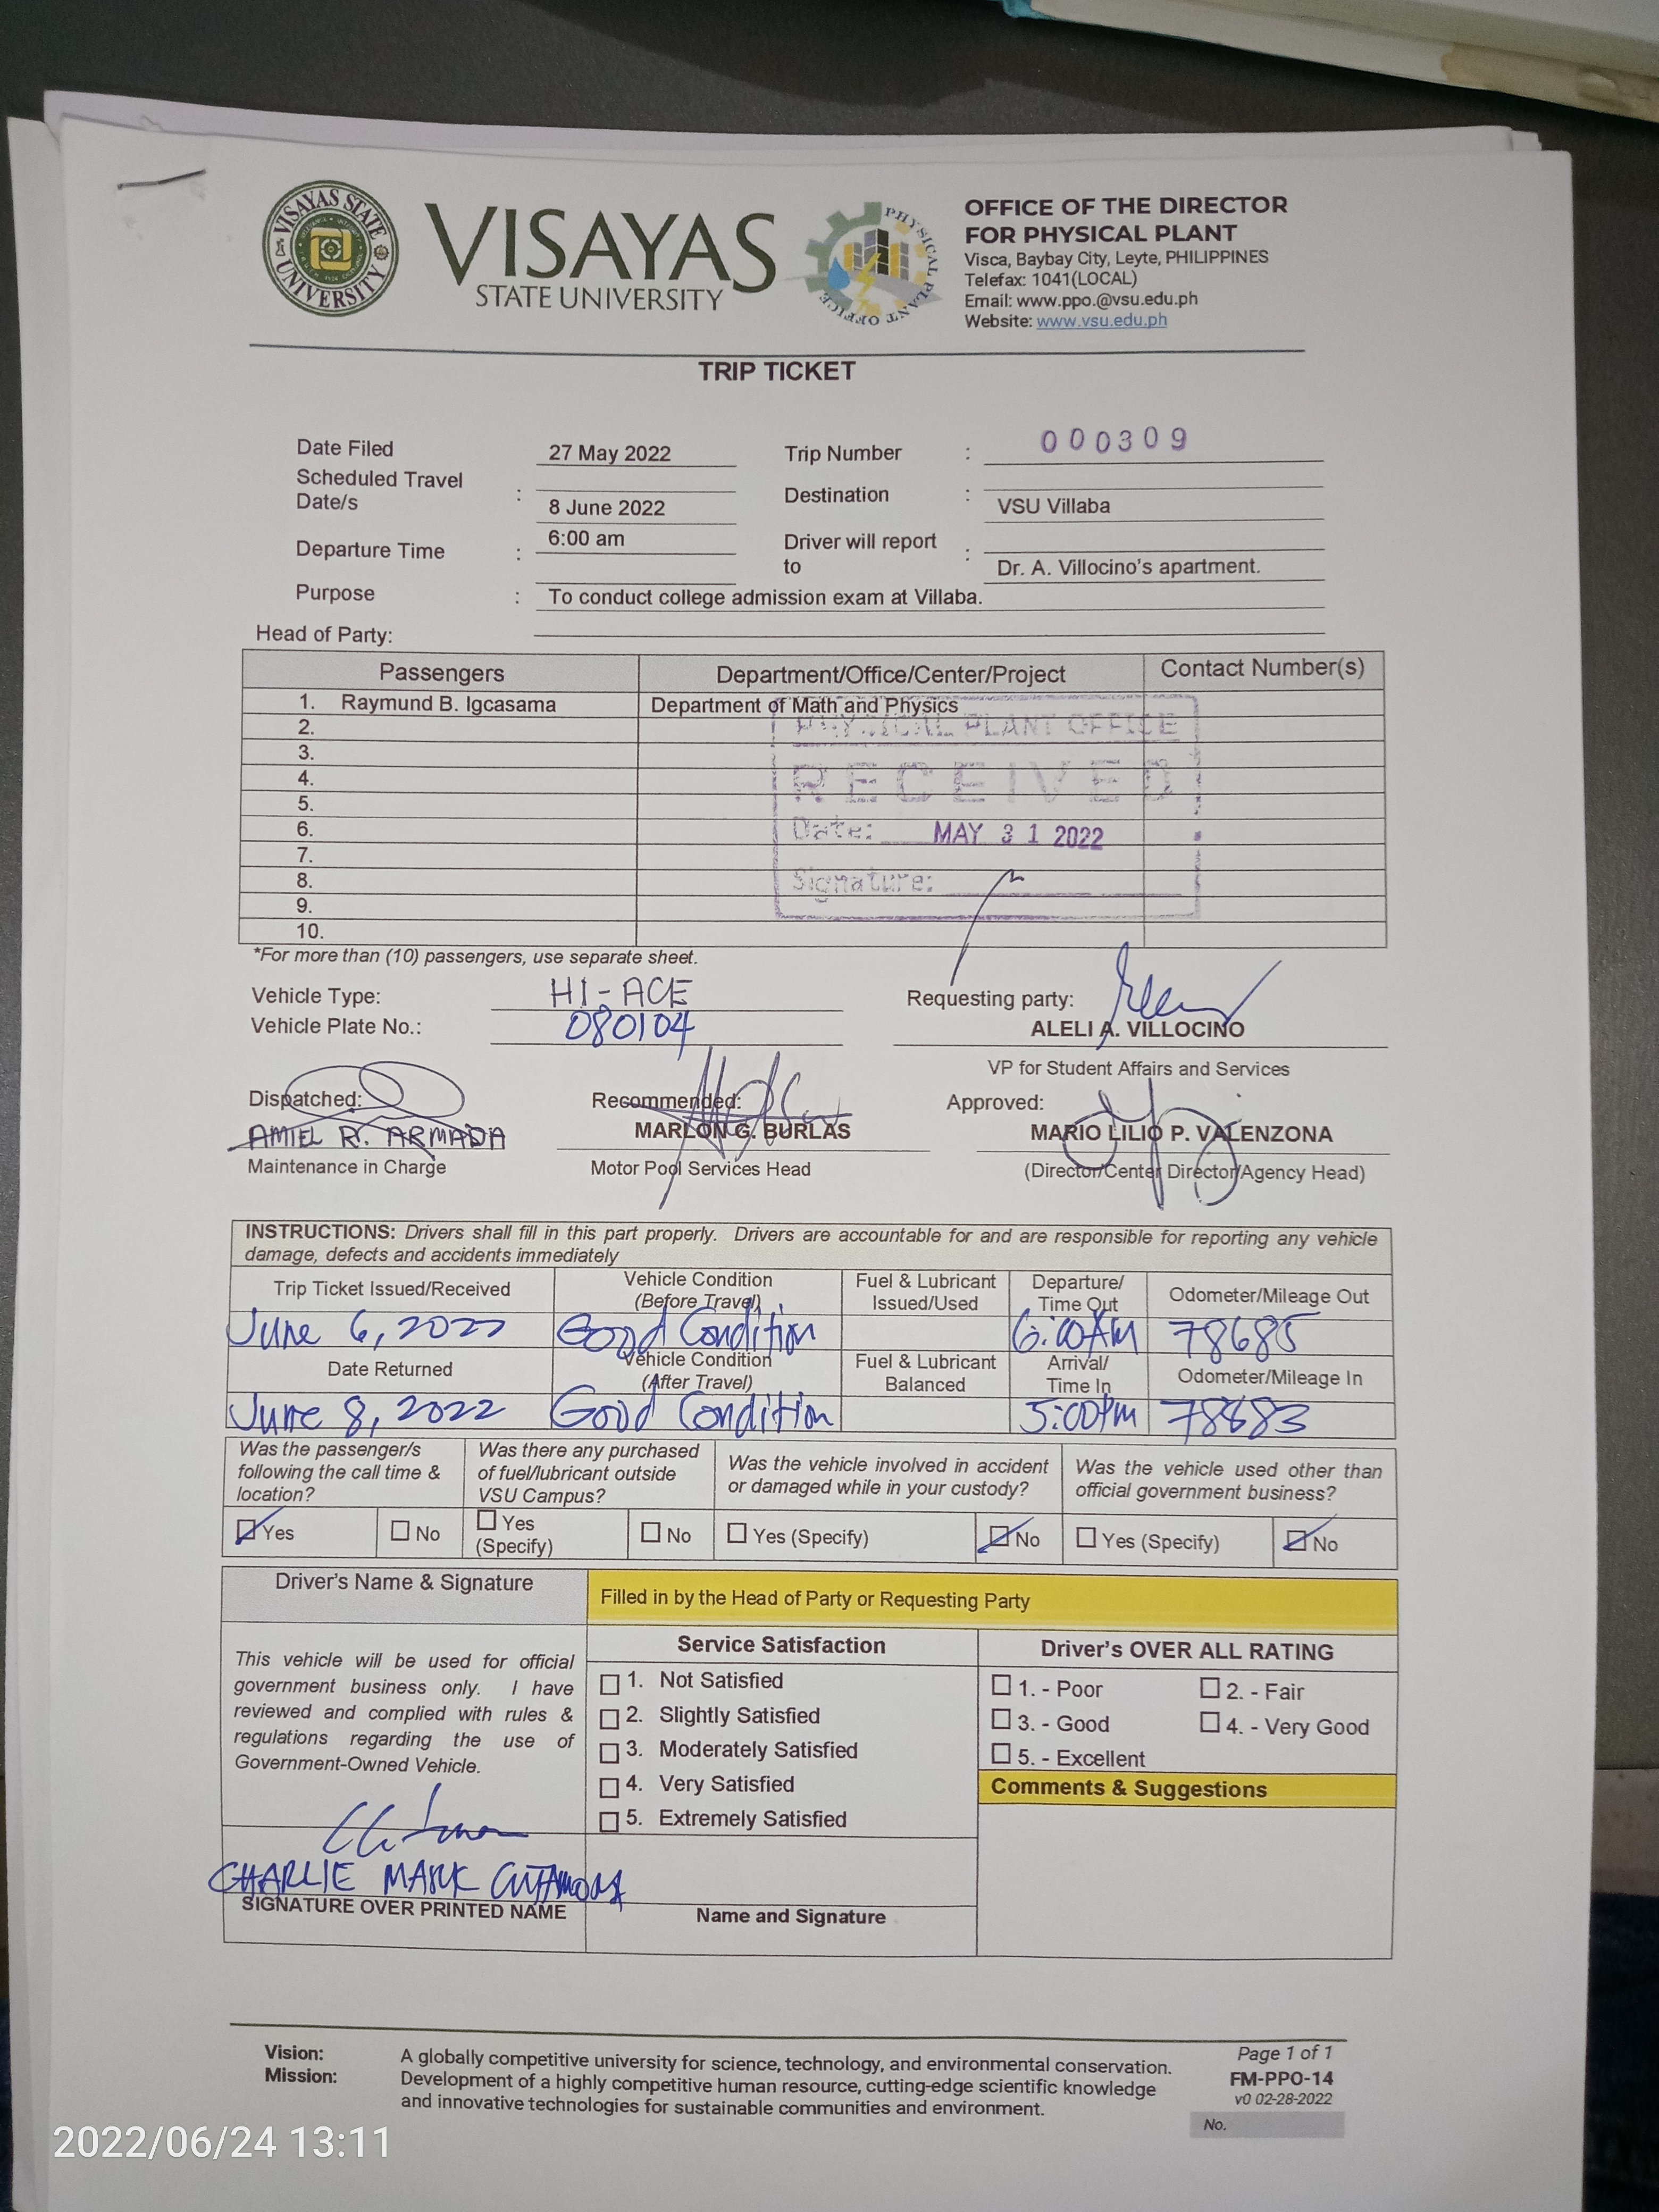 VISAYAS STATE UNIVERSITY
VISAYAS
STATE UNIVERSITY
PHYSICAL PLANT OFFICE
OFFICE OF THE DIRECTOR
FOR PHYSICAL PLANT
Visca, Baybay City, Leyte, PHILIPPINES
Telefax: 1041(LOCAL)
Email: www.ppo.@vsu.edu.ph
Website: www.vsu.edu.ph
TRIP TICKET
Date Filed 27 May 2022 Trip Number : 000309
Scheduled Travel Date/s : 8 June 2022 Destination : VSU Villaba
Departure Time : 6:00 am Driver will report to : Dr. A. Villocino's apartment.
Purpose : To conduct college admission exam at Villaba.
Head of Party:
Passengers Department/Office/Center/Project Contact Number(s)
1. Raymund B. Igcasama Department of Math and Physics
2.
3.
4.
5.
6.
7.
8.
9.
10.
PHYSICAL PLANT OFFICE
RECEIVED
Date: MAY 31 2022
Signature:
*For more than (10) passengers, use separate sheet.
Vehicle Type: HI-ACE
Vehicle Plate No.: 080104
Requesting party:
ALELI A. VILLOCINO
VP for Student Affairs and Services
Dispatched: Recommended: Approved:
AMIEL R. ARMADA MARLON G. BURLAS MARIO LILIO P. VALENZONA
Maintenance in Charge Motor Pool Services Head (Director/Center Director/Agency Head)
INSTRUCTIONS: Drivers shall fill in this part properly. Drivers are accountable for and are responsible for reporting any vehicle
damage, defects and accidents immediately
Trip Ticket Issued/Received Vehicle Condition (Before Travel) Fuel & Lubricant Issued/Used Departure/ Time Out Odometer/Mileage Out
June 6, 2022 Good Condition 6:00AM 78685
Date Returned Vehicle Condition (After Travel) Fuel & Lubricant Balanced Arrival/ Time In Odometer/Mileage In
June 8, 2022 Good Condition 5:00pm
Was the passenger/s following the call time & location? Was there any purchased of fuel/lubricant outside VSU Campus? Was the vehicle involved in accident or damaged while in your custody? Was the vehicle used other than official government business?
Yes No Yes (Specify) No Yes (Specify) No Yes (Specify) No
Driver's Name & Signature
Filled in by the Head of Party or Requesting Party
This vehicle will be used for official
government business only. I have
reviewed and complied with rules &
regulations regarding the use of
Government-Owned Vehicle.
CHARLIE MARK
SIGNATURE OVER PRINTED NAME
Service Satisfaction
1. Not Satisfied
2. Slightly Satisfied
3. Moderately Satisfied
4. Very Satisfied
5. Extremely Satisfied
Name and Signature
Driver's OVER ALL RATING
1. - Poor 2. - Fair
3. - Good 4. - Very Good
5. - Excellent
Comments & Suggestions
Vision: A globally competitive university for science, technology, and environmental conservation.
Mission: Development of a highly competitive human resource, cutting-edge scientific knowledge
and innovative technologies for sustainable communities and environment.
Page 1 of 1
FM-PPO-14
v0 02-28-2022
No.
2022/06/24 13:11